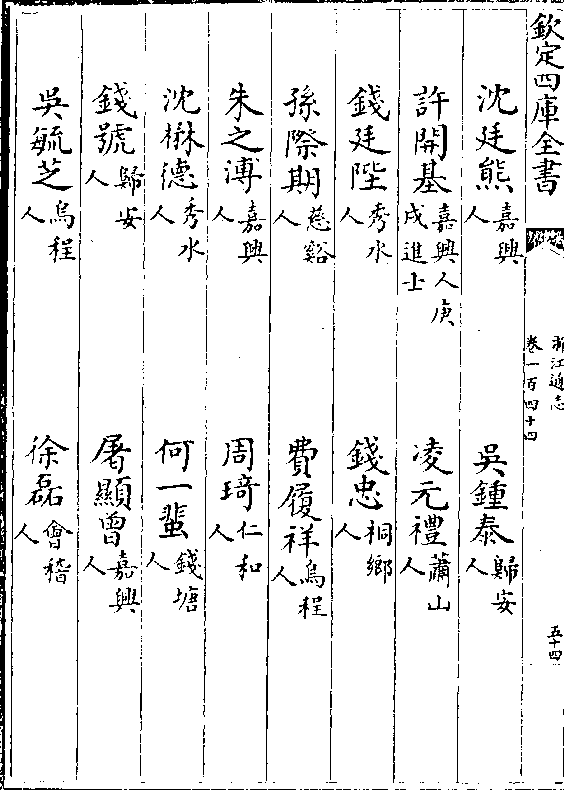 欽定四庫全書
浙江通志
卷一百四十四
五十四
沈廷熊嘉興人
吳鍾泰歸安人
許開基嘉興人庚戌進士
凌元禮蕭山人
錢廷陛秀水人
錢忠桐鄉人
孫際期慈谿人
費履祥烏程人
朱之溥嘉興人
周琦仁和人
沈楙德秀水人
何一蜚錢塘人
錢號歸安人
屠顯曾嘉興人
吳毓芝烏程人
徐磊會稽人